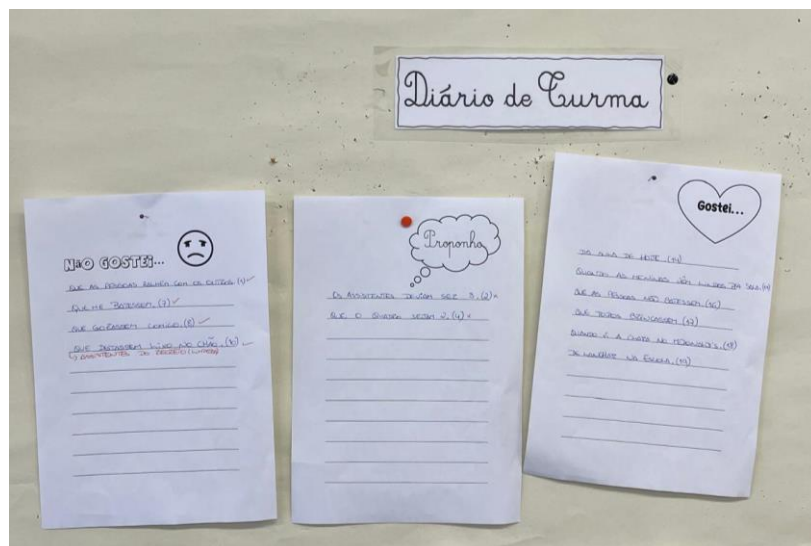 Diário de Turma
NÃO GOSTEI...
QUE AS PESSOAS COM OS OUTROS. (4) ✓
QUE ME BATESSEM. (7) ✓
QUE GOZASSEM COMIGO. (8) ✓
QUE DEITASSEM LIXO NO CHÃO. (10) ✓
↳ ASSISTENTES DO RECREIO
Proponho
OS ASSISTENTES DEVIAM SER 3. (2)
QUE O QUADRA SEJAM 2. (4)
Gostei...
DA AULA DE HOJE. (14)
QUANDO AS MENINAS VÊM
QUE AS PESSOAS NÃO BATESSEM. (16)
QUE TODOS BRINCASSEM. (17)
QUANDO É A NO MCDONALD'S. (18)
NA ESCOLA. (19)